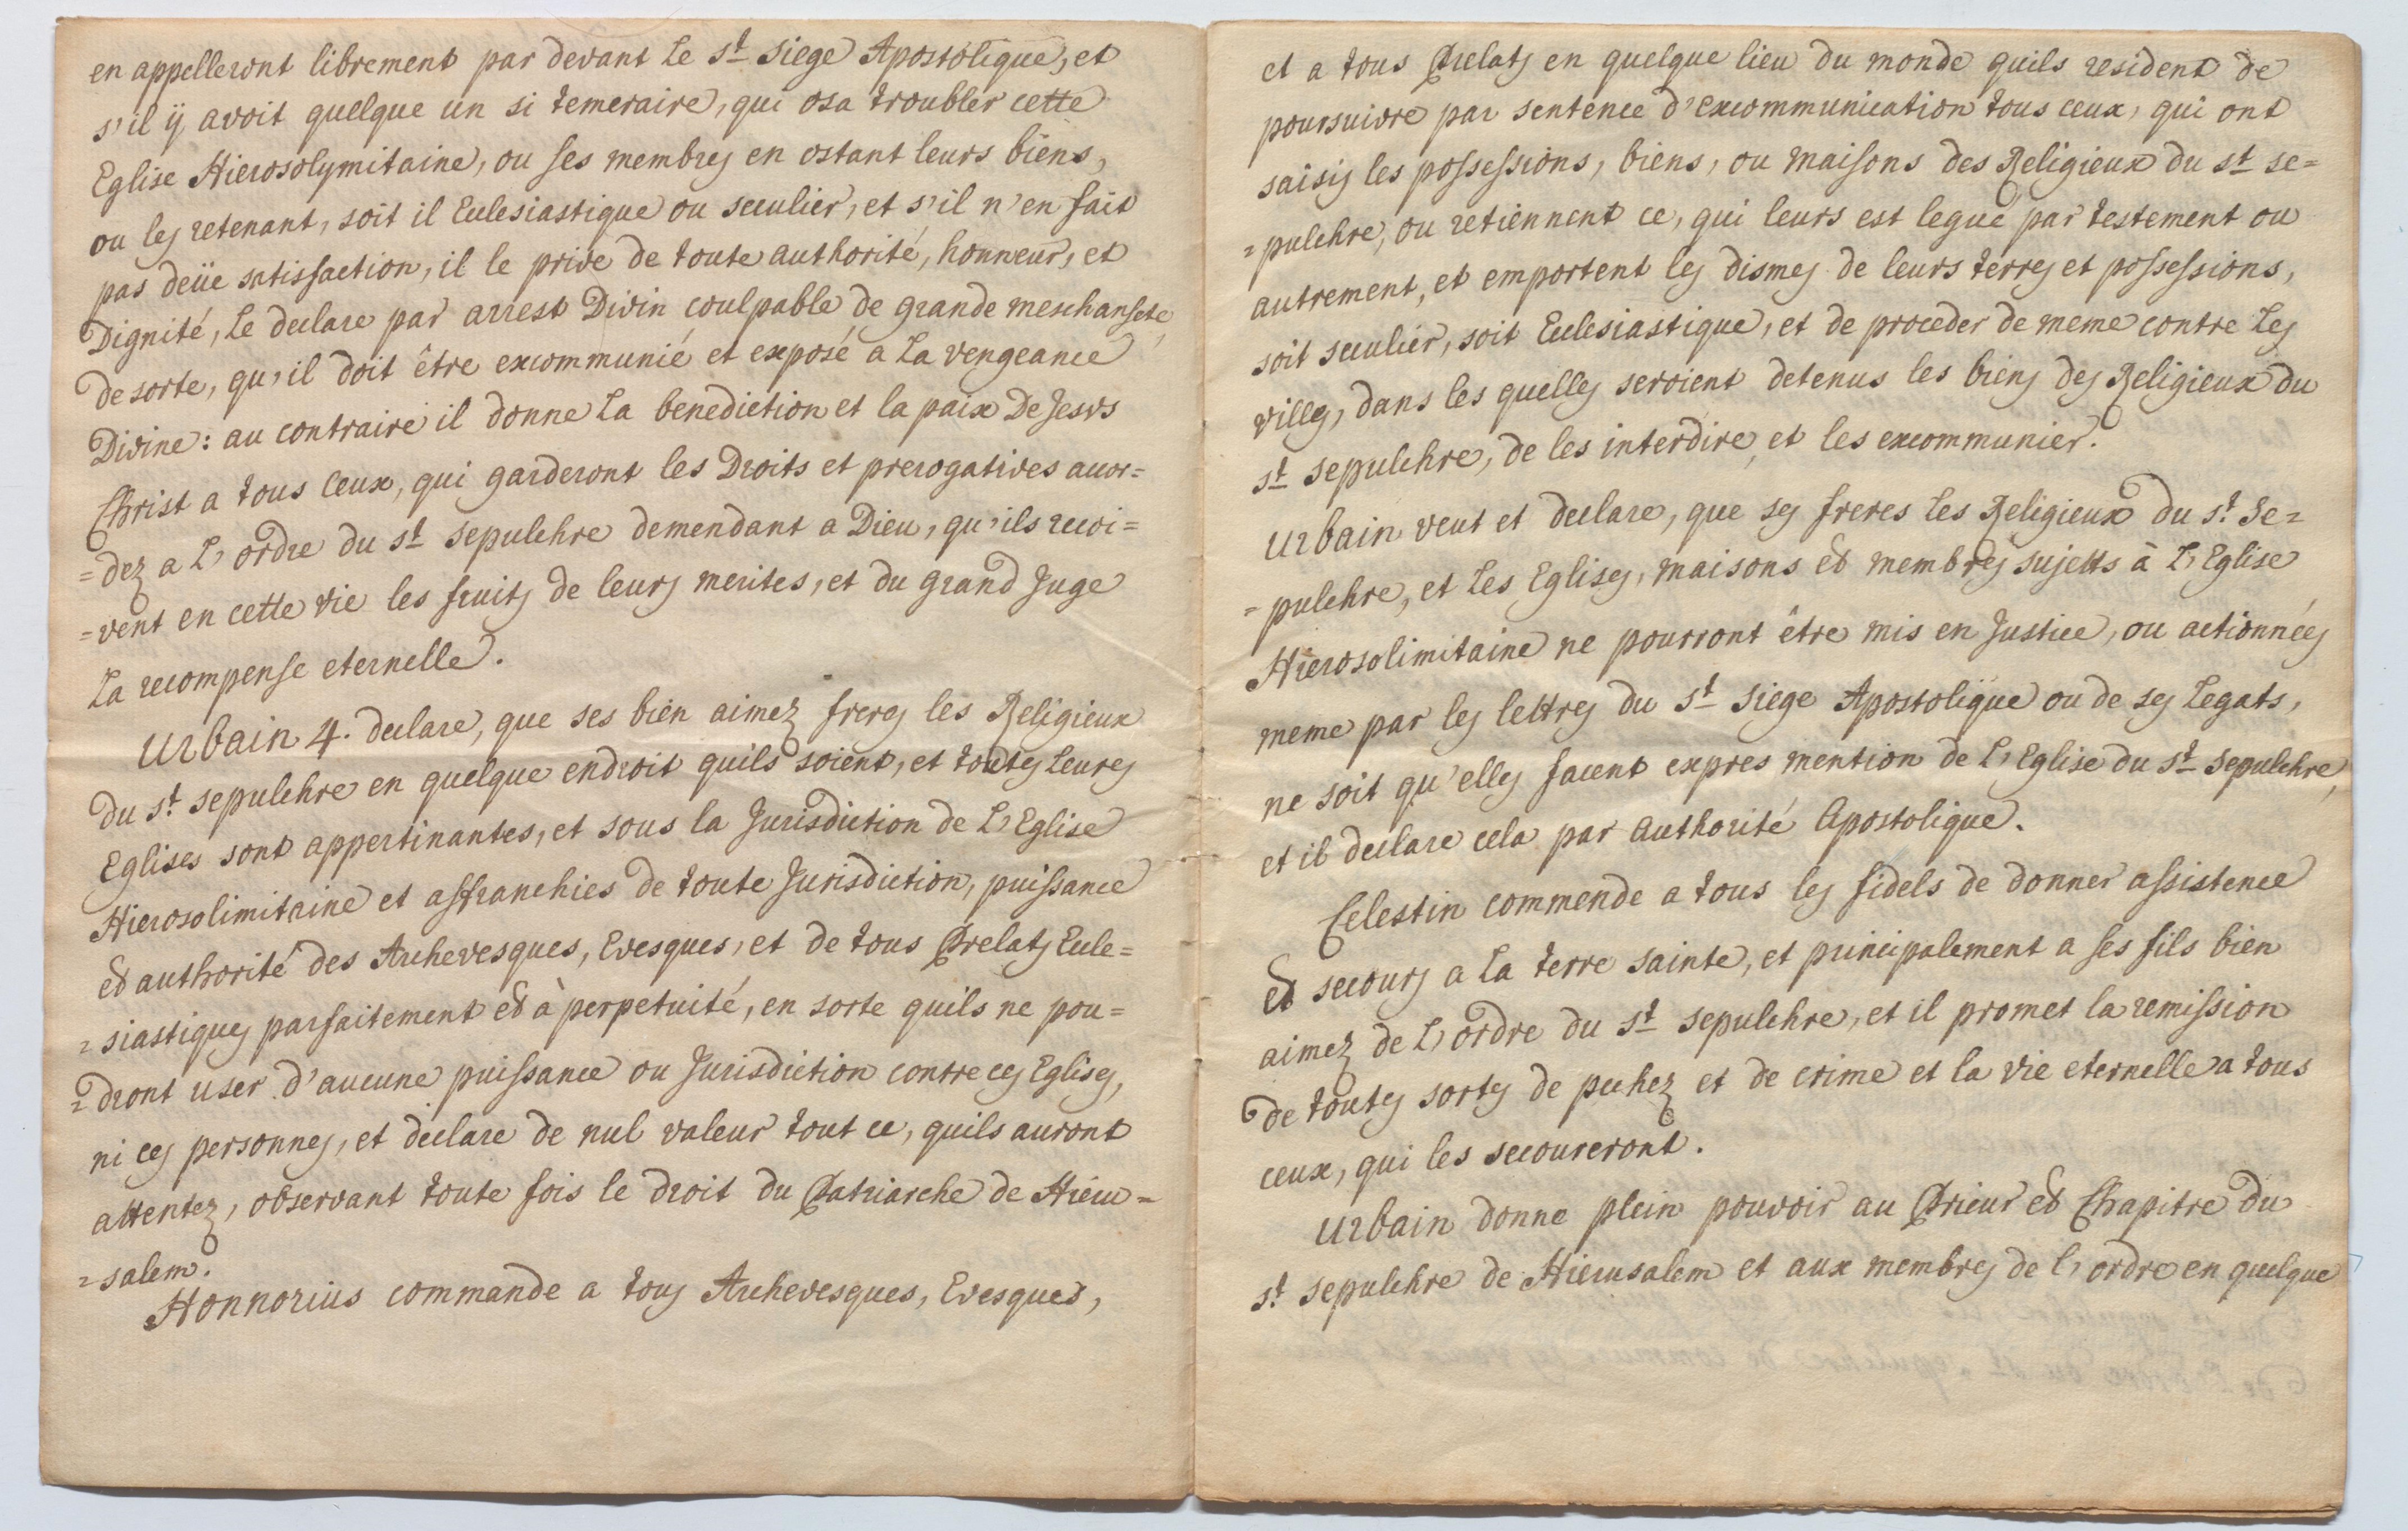 en appelleront librement par devant Le st siege Apostolique, et
s'il ÿ avoit quelque un si temeraire, qui osa troubler cette
Eglise Hierosolymitaine, ou ses membres en ostant leurs biens,
ou les retenant, soit il Eclesiastique ou seculier, et s'il n'en fait
pas deüe satisfaction, il le prive de toute authorité, honneur, et
Dignité, Le declare par arrest Divin coulpable de grande meschansete,
de sorte, qu'il doit être excommunié et exposé a La vengeance
Divine: au contraire il donne La benediction et la paix De Jesus
Christ a tous ceux, qui garderont les Droits et prerogatives accor=
=dez a L'ordre du st sepulchre demendant a Dieu, qu'ils recoi=
=vent en cette vie les fruits de leurs merites, et du grand Juge
La recompense eternelle.
Urbain 4. declare, que ses bien aimez freres les Religieux
du st. sepulchre en quelque endroit quils soient, et toutes Leures
Eglises sont appertinantes, et sous la Jurisdiction de L'Eglise
Hierosolimitaine et affranchies de toute Jurisdiction, puissance
et authorité des Archevesques, Evesques, et de tous Prelats Ecle=
=siastiques parfaitement et à perpetuité, en sorte quils ne pou=
=dront user d'aucune puissance ou Jurisdiction contre ces Eglises,
ni ces personnes, et declare de nul valeur tout ce, quils auront
attentez, observant toute fois le droit du Patriarche de Hieru=
=salem.
Honnorius commande a tous Archevesques, Evesques,
et a tous Prelats en quelque lieu du monde quils resident de
poursuivre par sentence d'excommunication tous ceux, qui ont
saisis les possessions, biens, ou maisons des Religieux du st se=
=pulchre, ou retiennent ce, qui leurs est legué par testement ou
autrement, et emportent les dismes de leurs terres et possessions,
soit seculier, soit Eclesiastique, et de proceder de meme contre Les
villes, dans les quelles seroient detenus les biens des Religieux du
st sepulchre, de les interdire, et les excommunier.
Urbain veut et declare, que ses freres Les Religieux du st. Se=
=pulchre, et Les Eglises, maisons et membres sujetts à L'Eglise
Hierosolimitaine ne pourront être mis en Justice, ou actionnées
meme par les lettres du st siege Apostolique ou de ses Legats,
ne soit qu'elles facent expres mention de L'Eglise du st sepulchre,
et il declare cela par Authorité Apostolique.
Celestin commende a tous les fidels de donner assistence
et secours a La terre sainte, et principalement a ses fils bien
aimez de L'ordre du st sepulchre, et il promet la remission
de toutes sortes de pechez et de crime et la vie eternelle a tous
ceux, qui les secoureront.
Urbain donne plein pouvoir au Prieur et Chapitre du
st. sepulchre de Hierusalem et aux membres de l'ordre en quelque